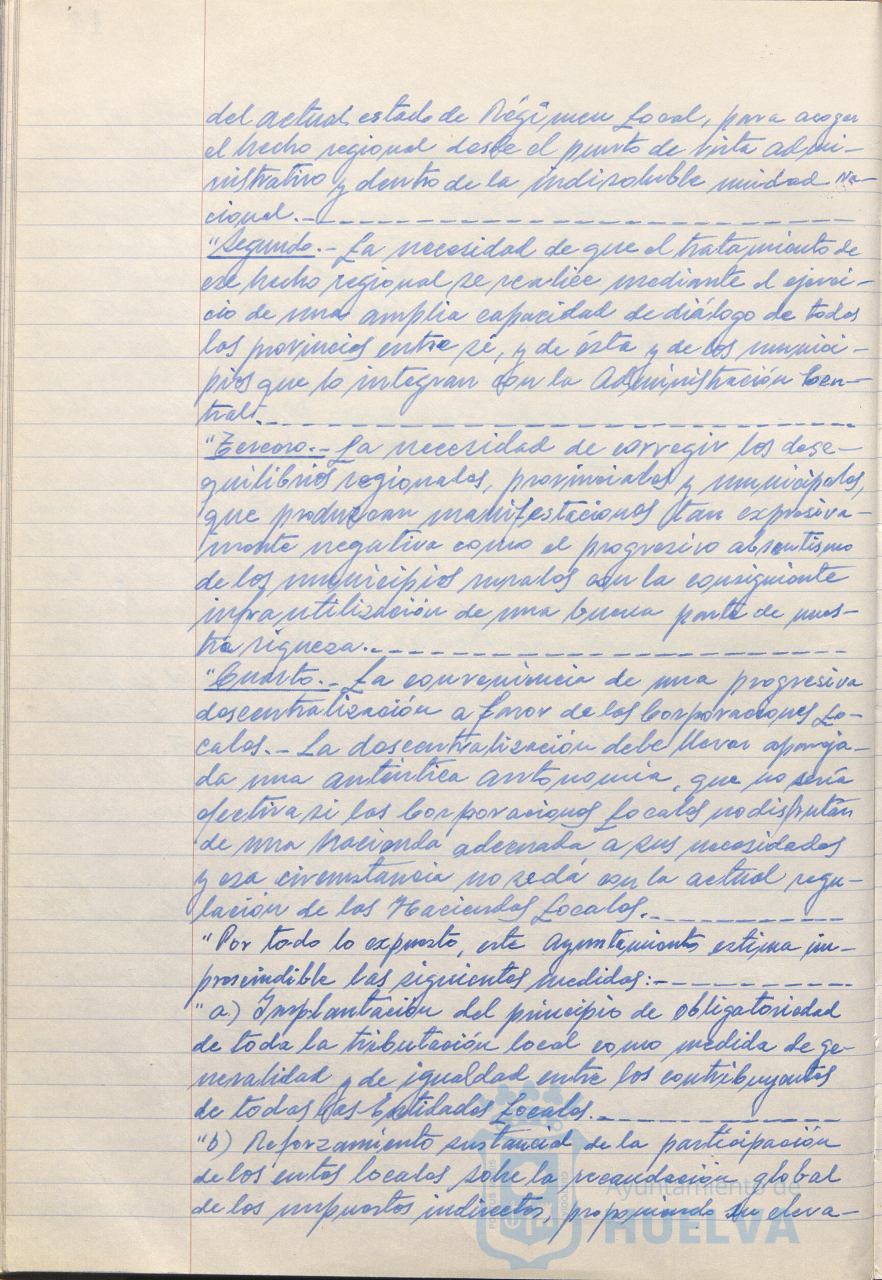 del actual estado de Régimen Local, para acoger
el hecho regional desde el punto de vista admi-
nistrativo y dentro de la indisoluble unidad Na-
cional.-
"Segundo.- La necesidad de que el tratamiento de
ese hecho regional se realice mediante el ejerci-
cio de una amplia capacidad de diálogo de todas
las provincias entre sí, y de ésta y de los munici-
pios que lo integran con la Administración Cen-
tral.
"Tercero.- La necesidad de corregir los dese-
quilibrios regionales, provinciales y municipales,
que produzcan manifestaciones tan expresiva-
mente negativa como el progresivo absentismo
de los municipios rurales con la consiguiente
infrautilización de una buena parte de nues-
tra riqueza.-
"Cuarto.- La conveniencia de una progresiva
descentralización a favor de las Corporaciones Lo-
cales.- La descentralización debe llevar apareja-
da una auténtica autonomía, que no sería
efectiva si las Corporaciones Locales no disfrutan
de una Hacienda adecuada a sus necesidades
y esa circunstancia no se dá con la actual regu-
lación de las Haciendas Locales.-
"Por todo lo expuesto, este Ayuntamiento estima im-
prescindible las siguientes medidas:-
"a) Implantación del principio de obligatoriedad
de toda la tributación local como medida de ge-
neralidad y de igualdad entre los contribuyentes
de todas las Entidades Locales.-
"b) Reforzamiento sustancial de la participación
de los entes locales sobre la recaudación global
de los impuestos indirectos, proponiendo su eleva-
Ayuntamiento de
HUELVA